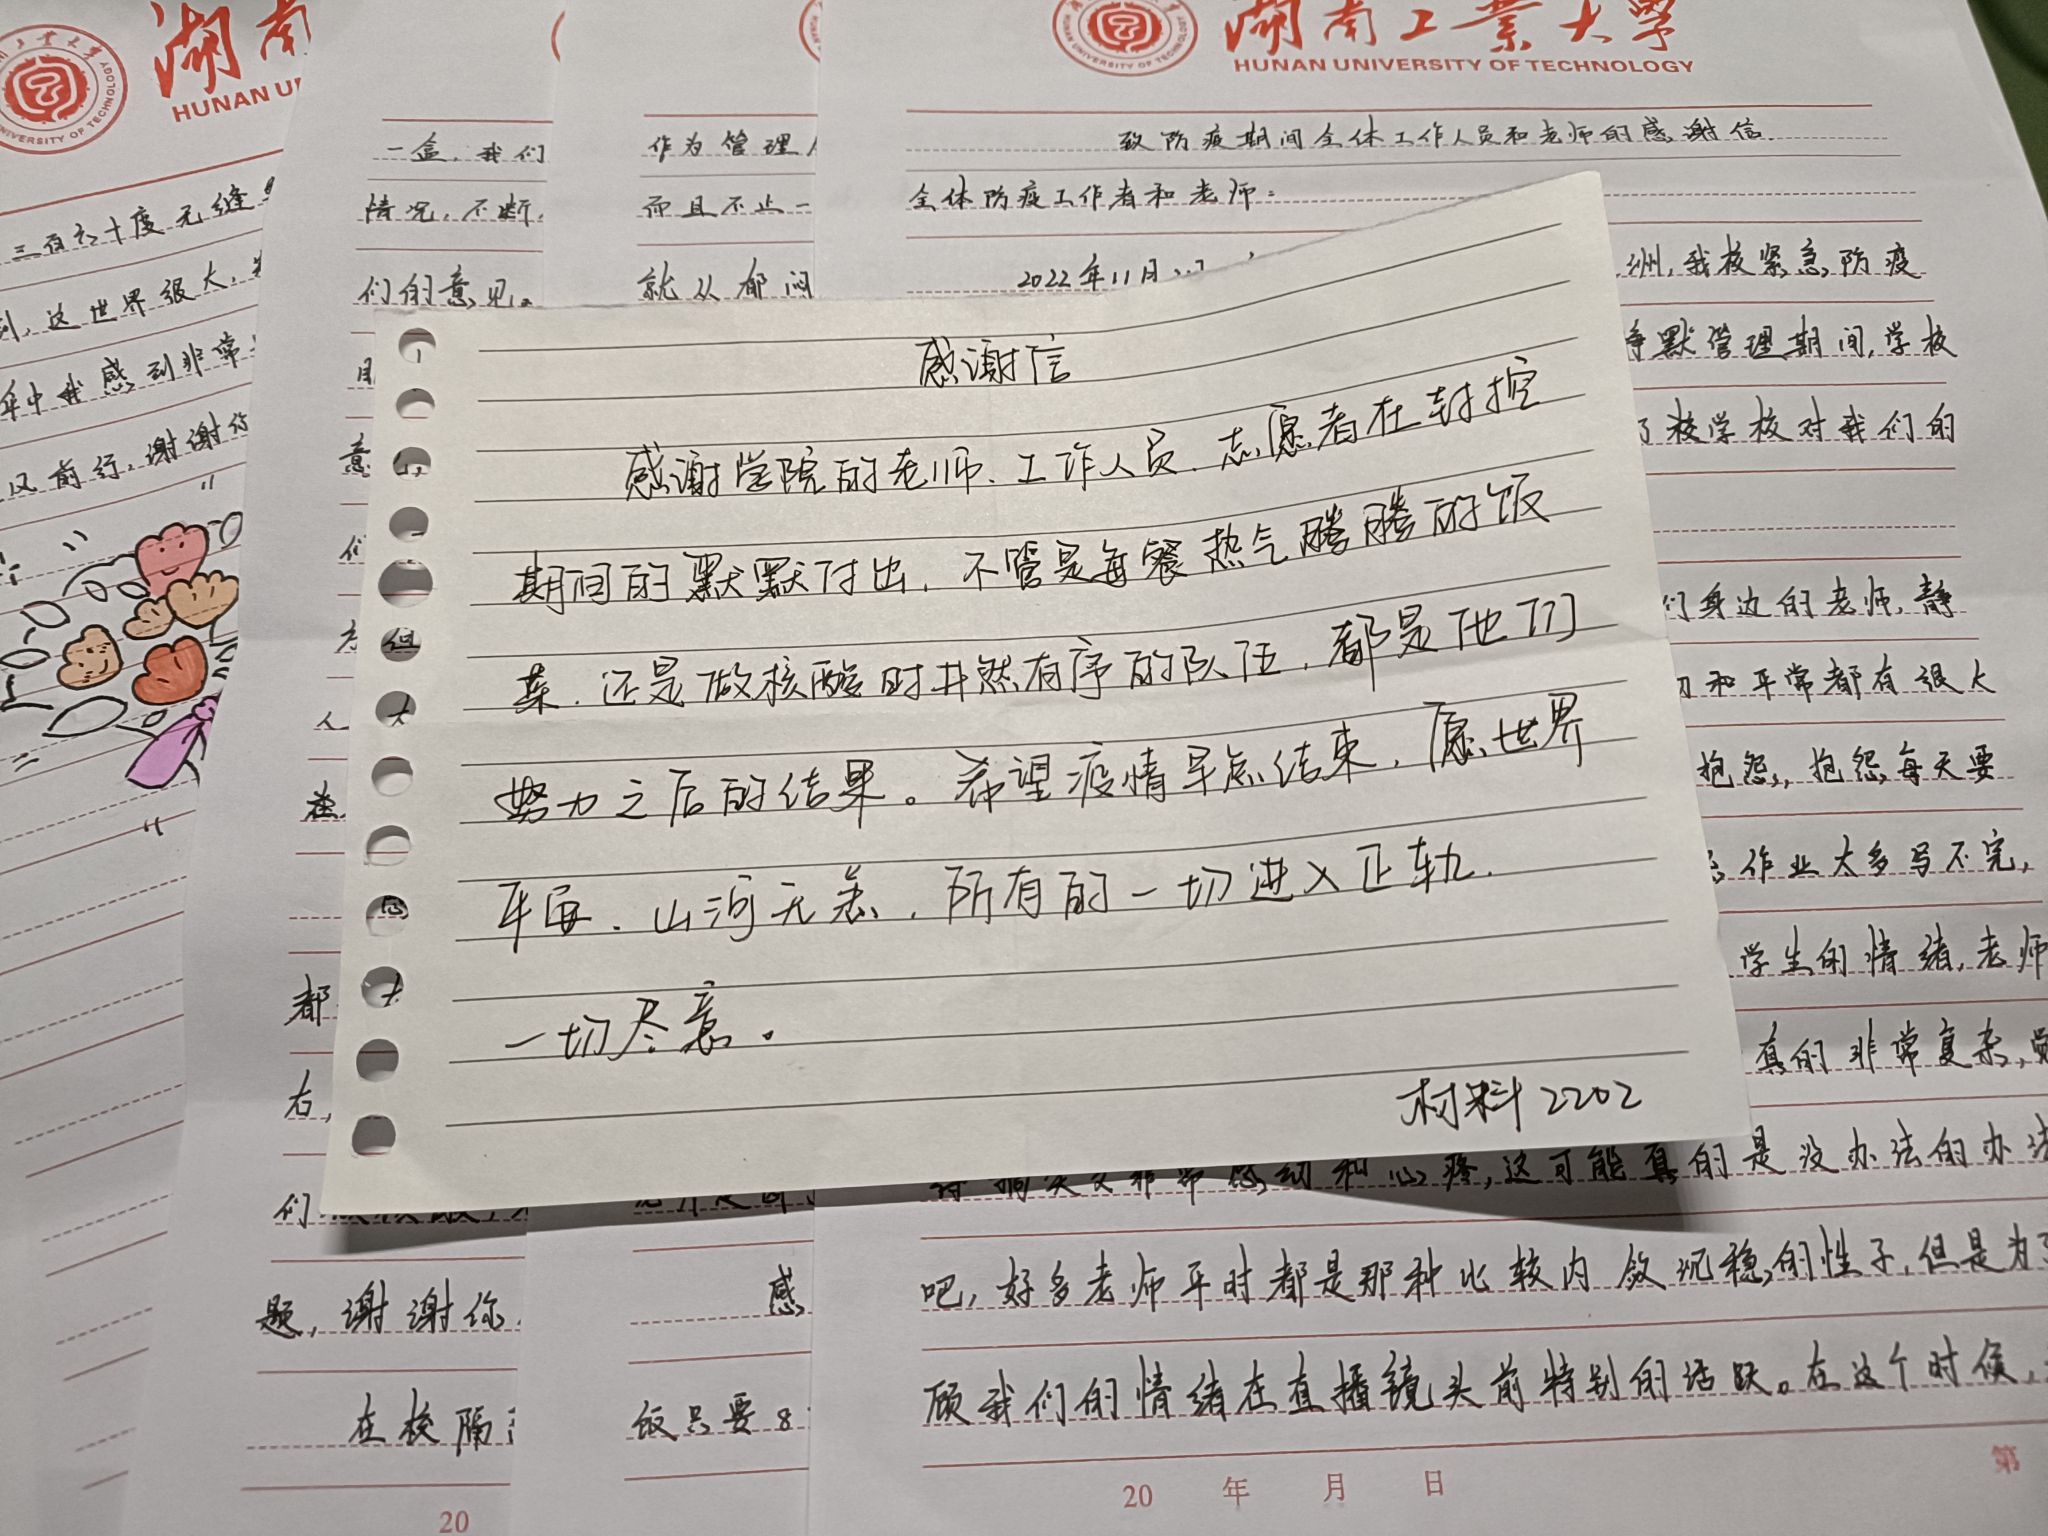 湖南
HUNAN UN
UNIVERSITY OF TECHNOLOGY
三百六十度无缝
这世界很大,
中我感到非常
风前行,谢谢你
一盒,我们
情况,不断
们的意见。
意
人
都
右,
们
题,谢谢你
在校隔
20
作为管理
而且不止一
就从郁闷
感
饭只要8
湖南工业大学
HUNAN UNIVERSITY OF TECHNOLOGY
致防疫期间全体工作人员和老师的感谢信
全体防疫工作者和老师:
2022年11月
洲,我校紧急防疫
静默管理期间,学校
了校学校对我们的
们身边的老师,静
和平常都有很大
抱怨,抱怨每天要
作业太多写不完,
学生的情绪,老师
真的非常复杂,
感动和心疼,这可能真的是没办法的办法
吧,好多老师平时都是那种比较内敛沉稳的性子,但是为了
顾我们的情绪在直播镜头前特别的活跃。在这个时候,
20 年 月 日
第
感谢信
感谢学院的老师、工作人员、志愿者在封控
期间的默默付出,不管是每餐热气腾腾的饭
菜,还是做核酸时井然有序的队伍,都是他们
努力之后的结果。希望疫情早点结束,愿世界
平安、山河无恙,所有的一切进入正轨.
一切尽意。
材料2202